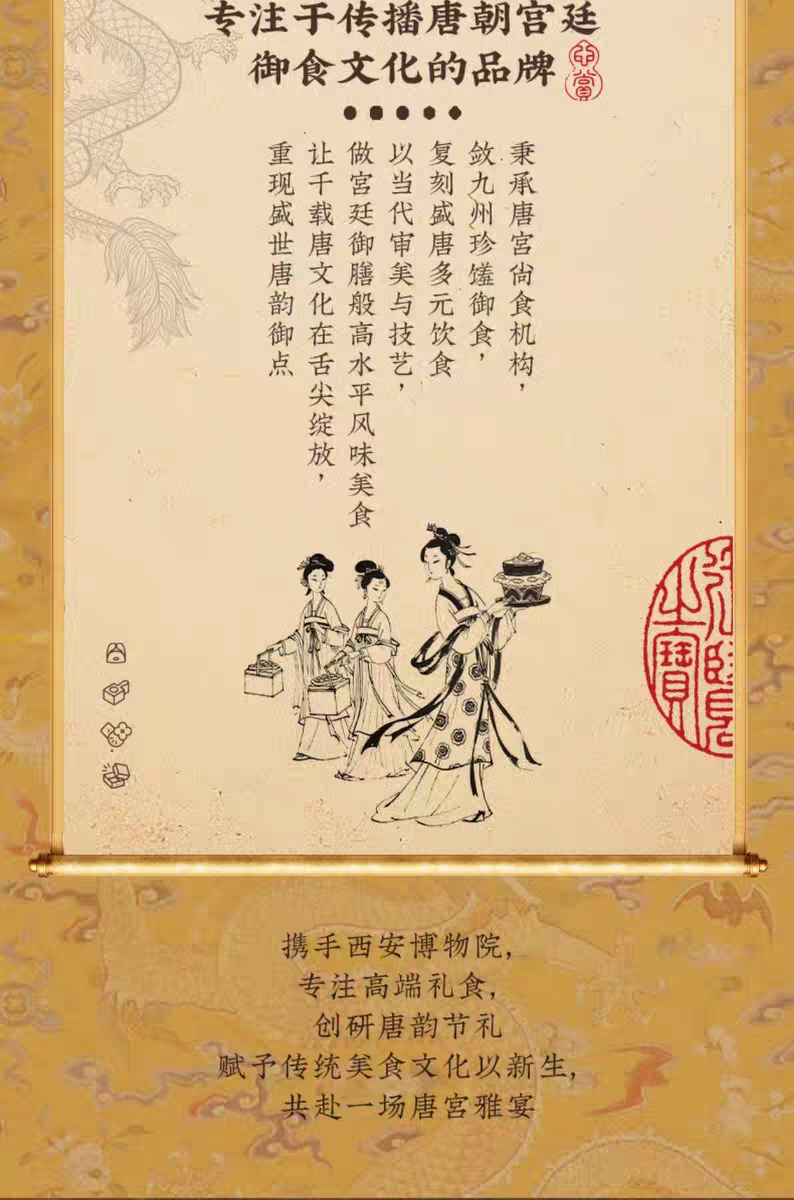 专注于传播唐朝宫廷
御食文化的品牌
秉承唐宫尚食机构，
敛九州珍馐御食，
复刻盛唐多元饮食
以当代审美与技艺，
做宫廷御膳般高水平风味美食
让千载唐文化在舌尖绽放，
重现盛世唐韵御点
携手西安博物院，
专注高端礼食，
创研唐韵节礼
赋予传统美食文化以新生，
共赴一场唐宫雅宴